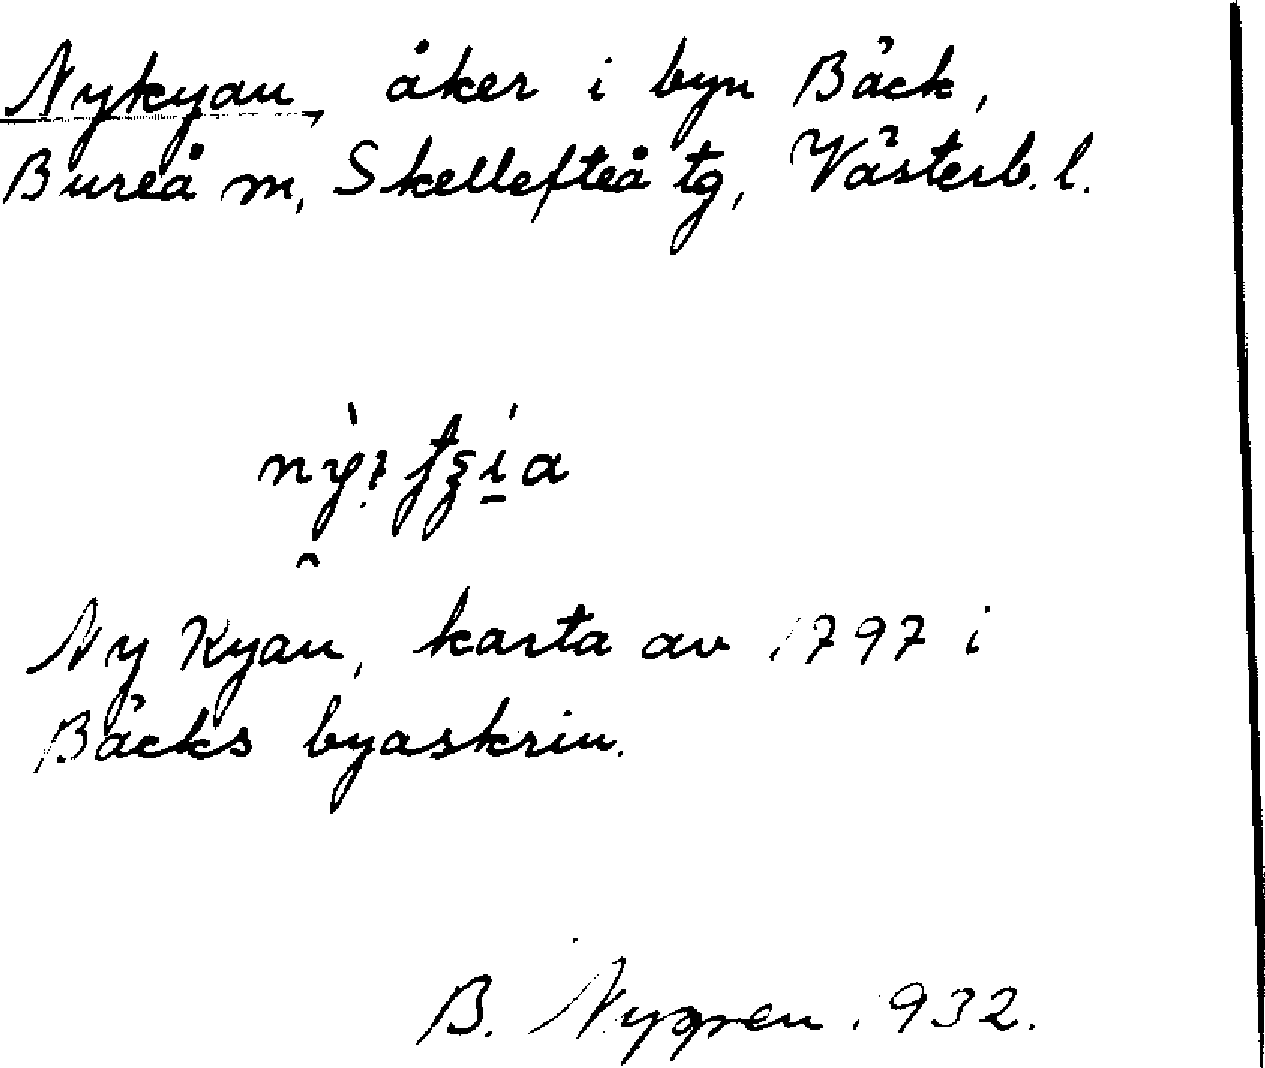 Nykyan, åker i byn Bäck,
Bureå m, Skellefteå tg, Västerb. l.
Ny Kyan, karta av 1797 i
Bäcks byaskrin.
B. Nygren. 1932.